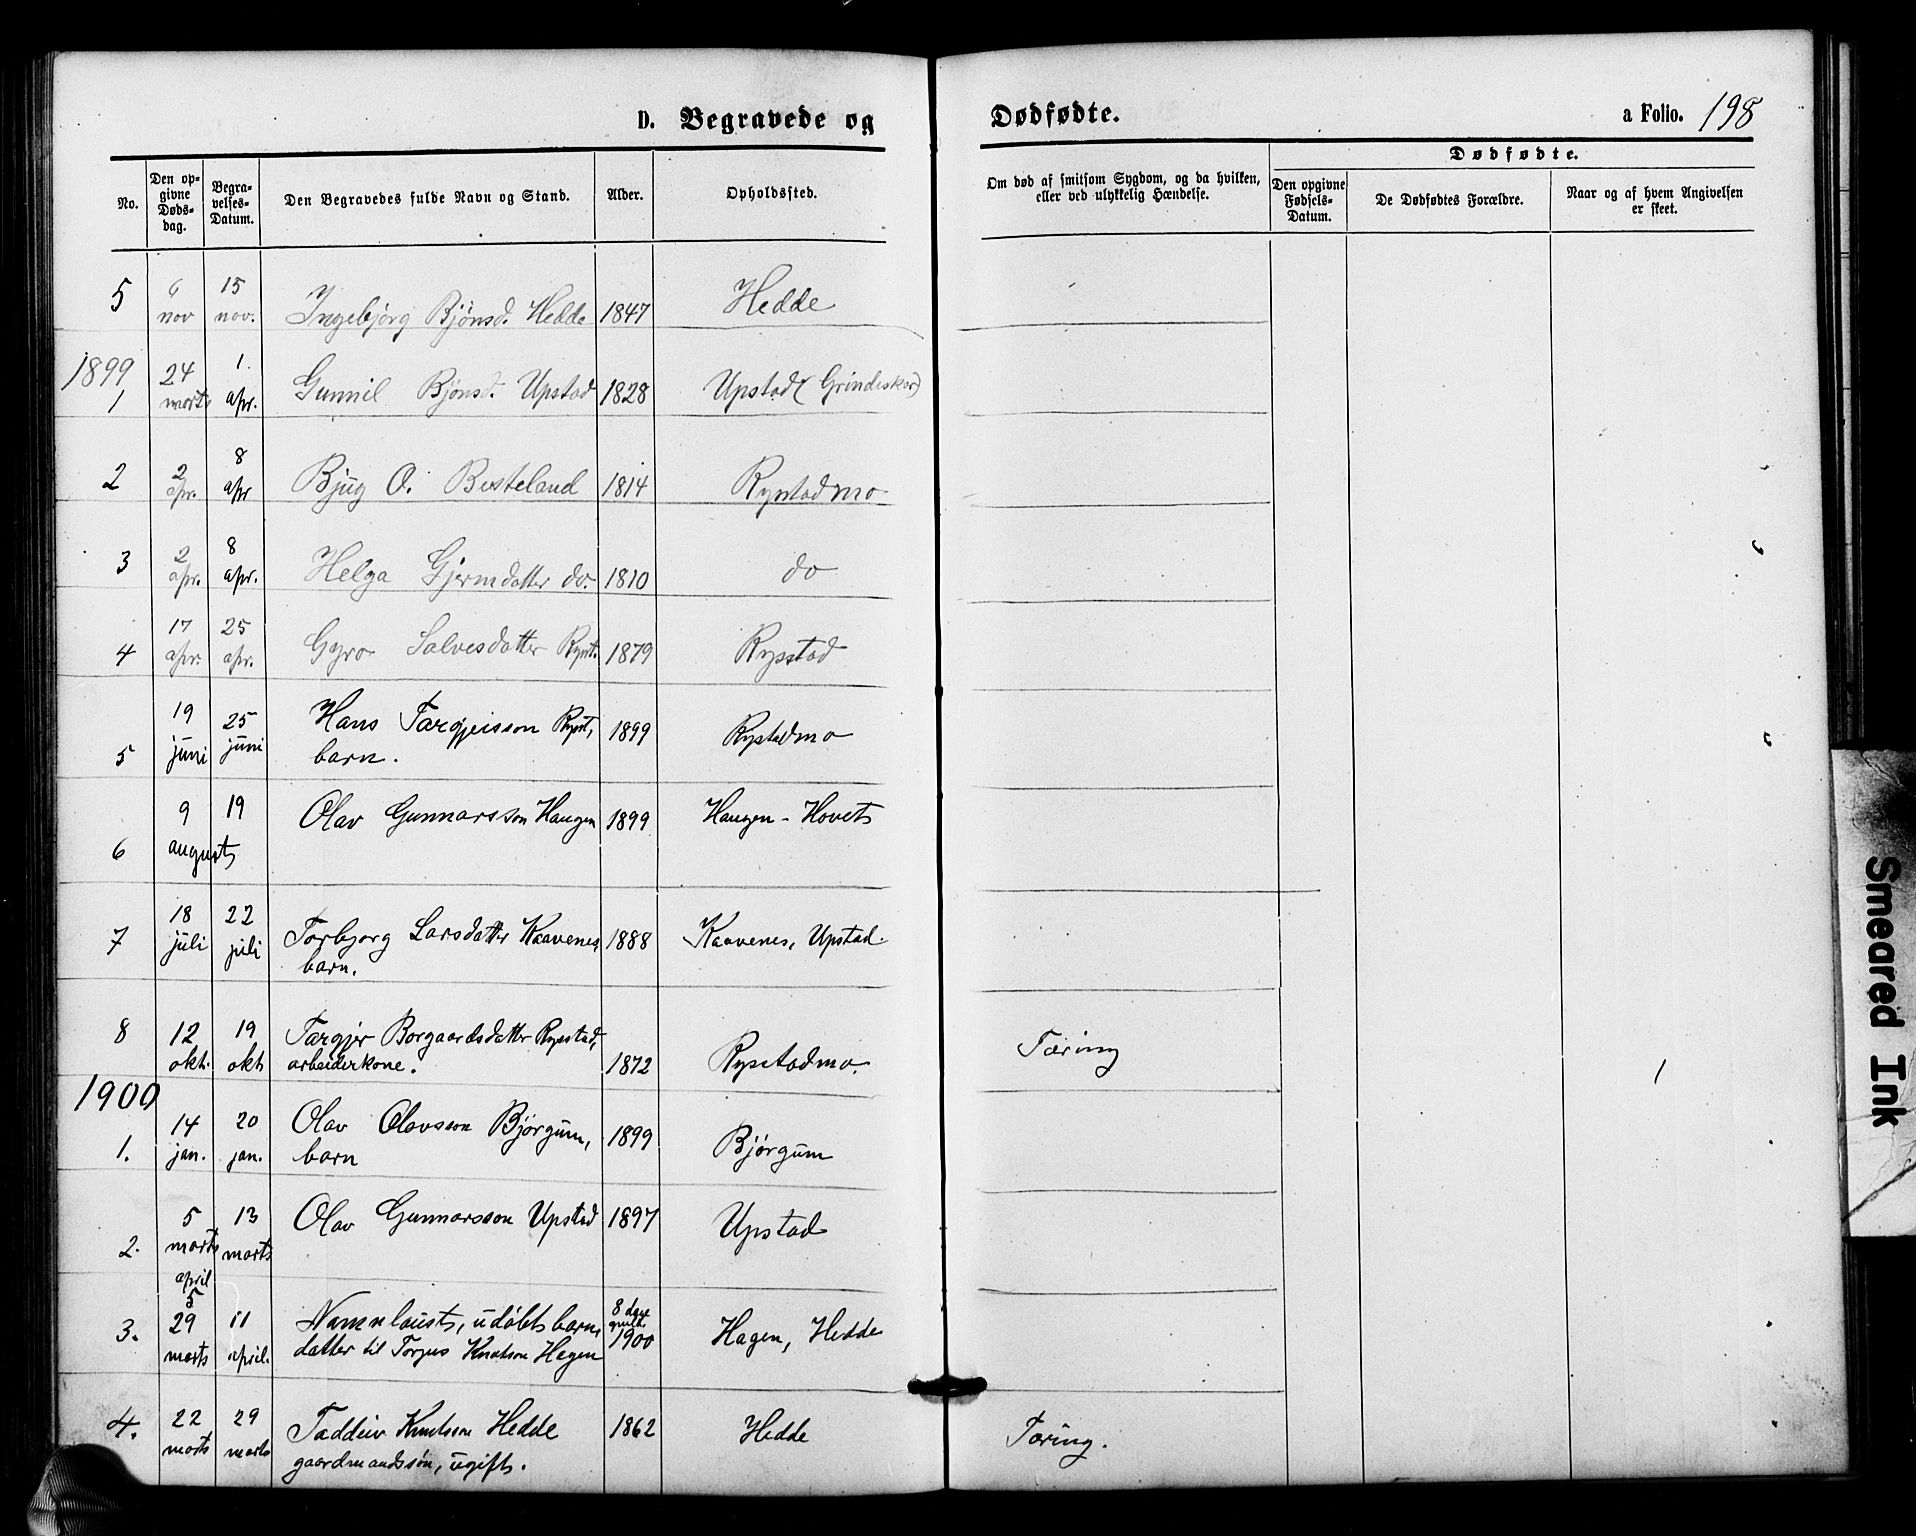 D. Begravede og Dødfødte. a Folio. 198
No.
Den opgivne Dødsdag.
Begravelses-Datum.
Den Begravedes fulde Navn og Stand.
Alder.
Opholdssted.
Om død af smitsom Sygdom, og da hvilken, eller ved ulykkelig Hændelse.
Dødfødte.
Den opgivne Fødsels-Datum.
De Dødfødtes Forældre.
Naar og af hvem Angivelsen er skeet.
5 6 nov 15 nov. Ingebjørg Bjønsd. Hedde 1847 Hedde
1899
1 24 marts 1. apr. Gunnil Bjønsd. Upstad 1828 Upstad (Grindeskar)
2 2 apr. 8 apr Bjug O. Besteland 1814 Rystadmo
3 2 apr. 8 apr. Helga Gjermdatter do. 1810 do
4 17 apr. 25 apr. Gyro Salvesdatter Ryst. 1879 Rysstad
5 19 juni 25 juni Hans Targjeisson Ryst, 1899 Rystadmo
barn.
6 9 19 august Olav Gunnarsson Haugen 1899 Haugen - Hovet
7 18 juli 22 juli Torbjorg Larsdatter Kaavenes, 1888 Kaavenes, Upstad.
barn.
8 12 okt. 19 okt Targjer Borgaardsdatter Rysstad, 1872 Rysstadmo. Tæring 1
arbeiderkone.
1900
1. 14 jan. 20 jan. Olav Olavsson Bjørgum, 1899 Bjørgum
barn
2. 5 marts 13 marts Olav Gunnarsson Upstad 1897 Upstad
3. april 5 29 marts 11 april. Namnlaust, udøbt barn, 8 dage 1900 Hagen, Hedde
datter til Torjus Knutson Hagen
4. 22 marts 29 marts Taddeiv Knutsson Hedde 1862 Hedde Tæring.
gaardmandssøn, ugift.
Smeared Ink